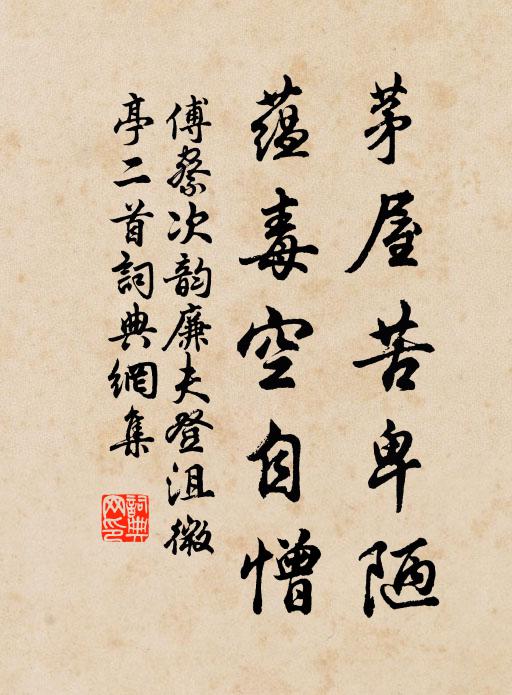 茅屋苦卑陋
蕴毒空自憎
傅察次韵廉夫登沮徼
亭二首詞典網集
詞典
网印